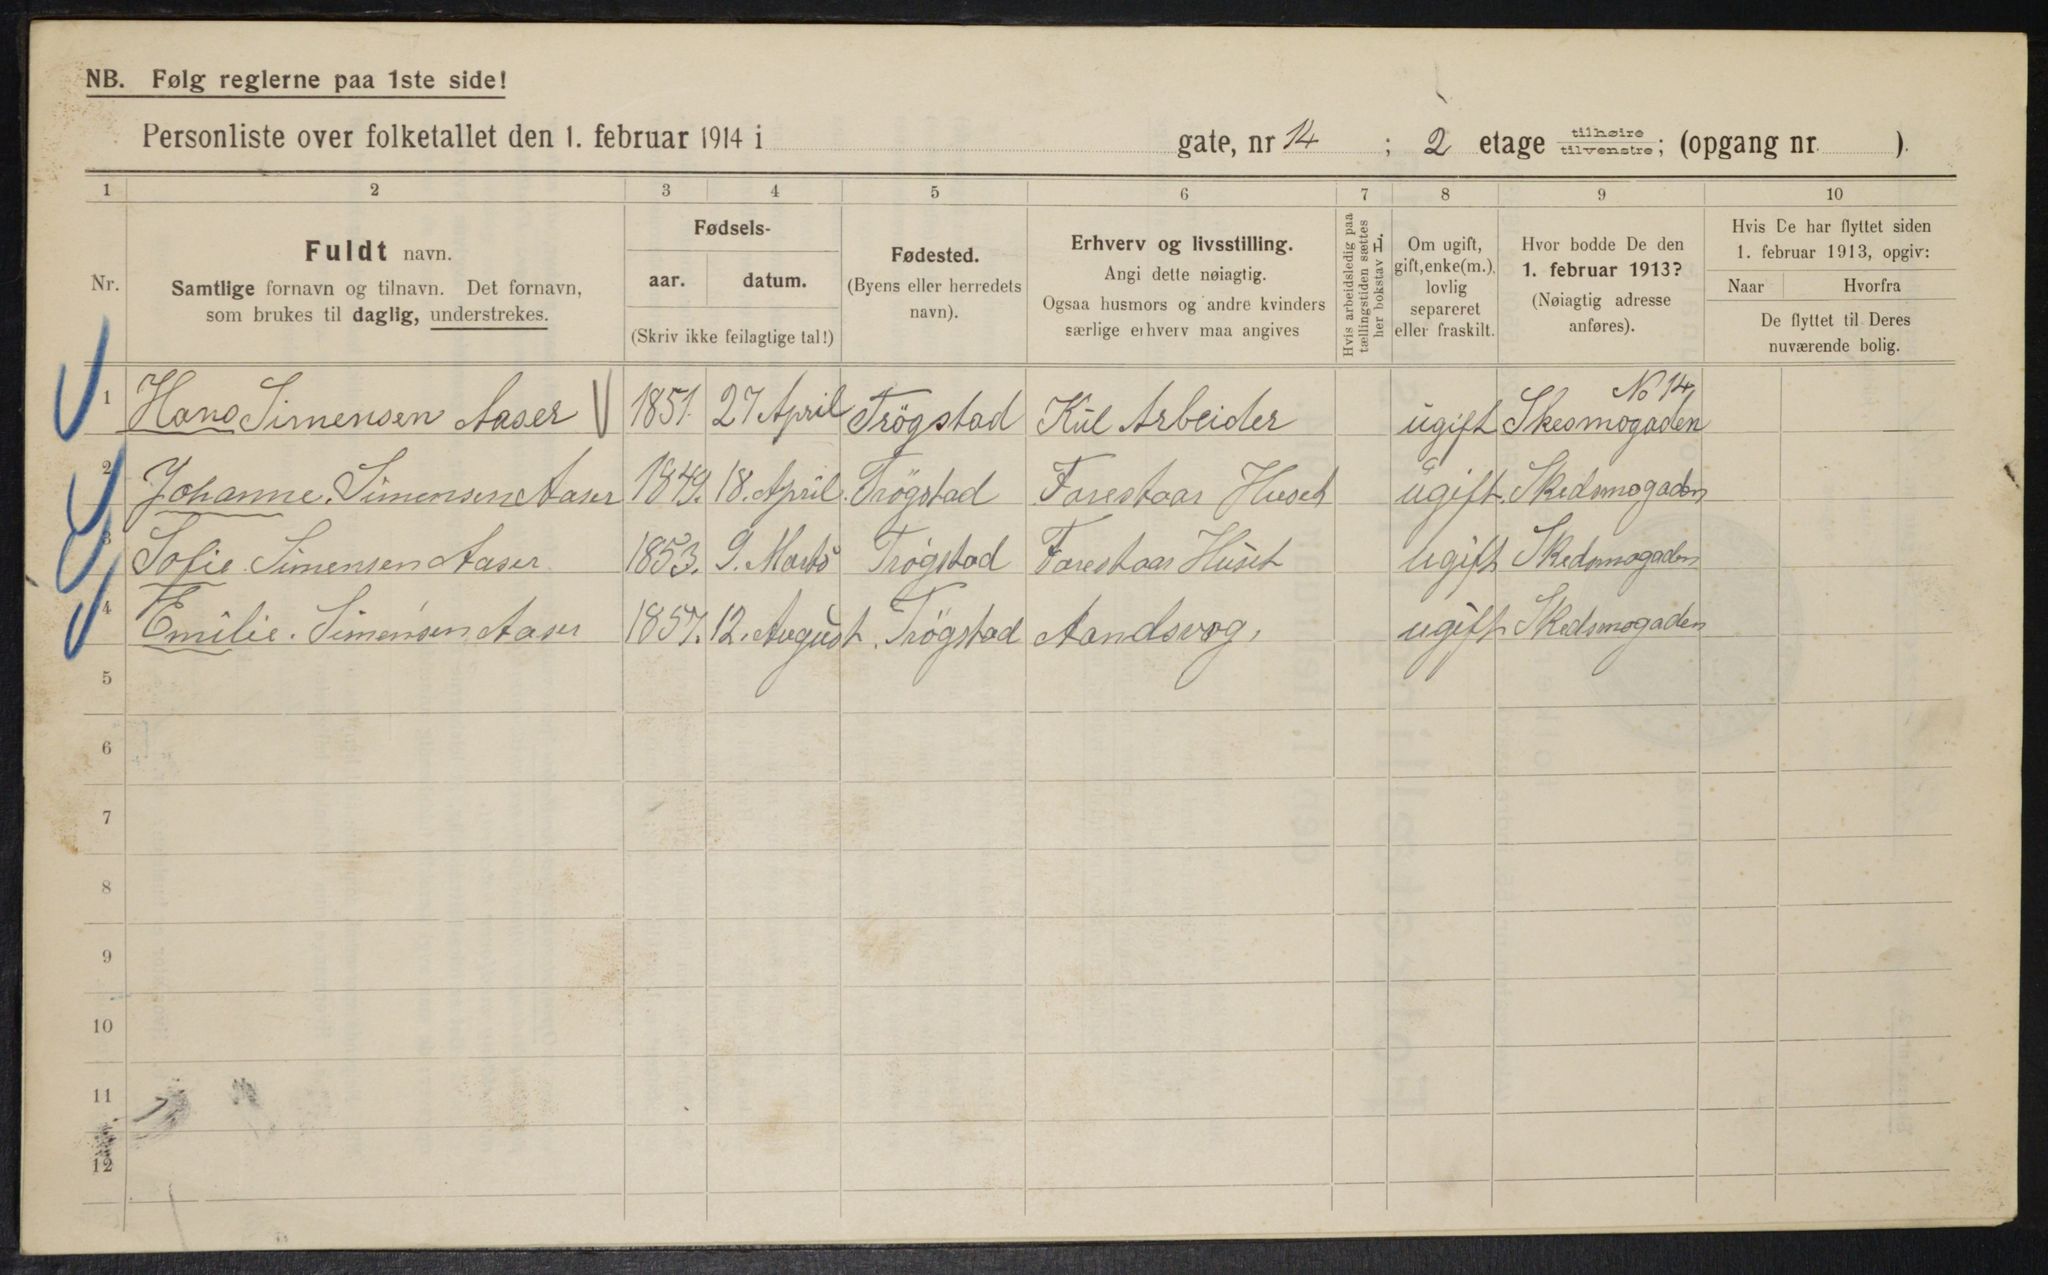 NB. Følg reglerne paa 1ste side!
Personliste over folketallet den 1. februar 1914 i gate, nr 14 ; 2 etage tilhøire tilvenstre; (opgang nr. ).
1 2 3 4 5 6 7 8 9 10
Nr.
Fuldt navn.
Samtlige fornavn og tilnavn. Det fornavn,
som brukes til daglig, understrekes.
Fødsels-
aar. datum.
(Skriv ikke feilagtige tal!)
Fødested.
(Byens eller herredets
navn).
Erhverv og livsstilling.
Angi dette nøiagtig.
Ogsaa husmors og andre kvinders
særlige erhverv maa angives
Hvis arbeidsledig paa
tællingstiden sættes
her bokstav L.
Om ugift,
gift, enke(m.),
lovlig
separeret
eller fraskilt.
Hvor bodde De den
1. februar 1913?
(Nøiagtig adresse
anføres).
Hvis De har flyttet siden
1. februar 1913, opgiv:
Naar Hvorfra
De flyttet til Deres
nuværende bolig.
No 14
1 Hans Simensen Aaser 1851. 27 April Trögstad Kül Arbeider ugift Skesmogaden
2 Johanne. Simensen Aaser 1849. 18. April. Trögstad Farestaar Huset ugift. Skedsmogaden
3 Sofie. Simensen Aaser 1853. 9. Marts Trögstad Farestaar Huset ugift Skedsmogaden
4 Emilie. Simensen Aaser 1857. 12. August. Trögstad Aandsvag, ugift Skedsmogaden
5
6
7
8
9
10
11
12